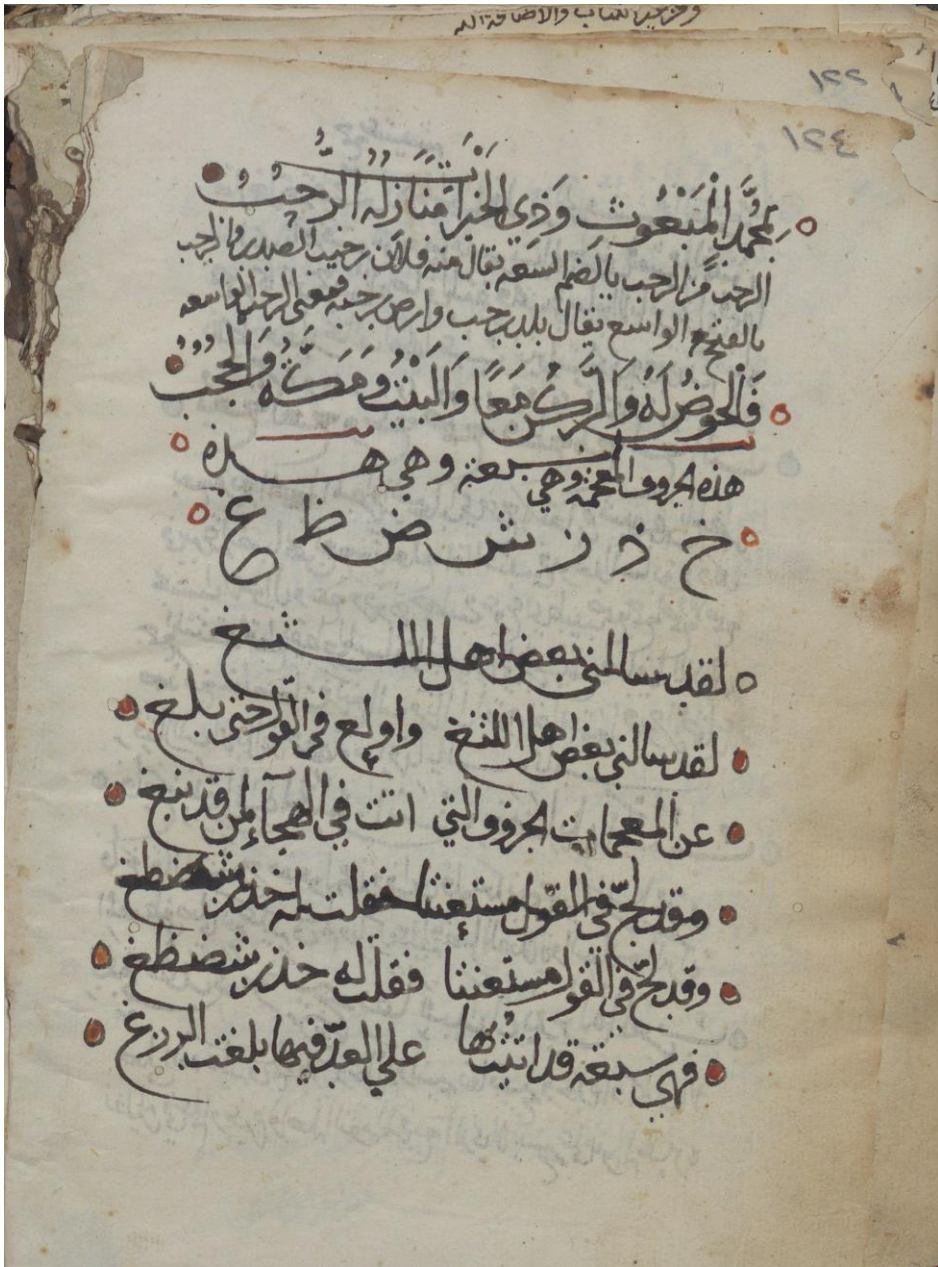 ١٢٢
١٢٤
بمُحمَّد الْمَبْعُوث وَذِي الخيرات مَنَازلُه الرحبُ
الرحب من الرحب يا لضم السعه يقال منه فلان رحيب الصدر والرحب
بالفتح الواسع يقال بلد رحب وارض رحبه فمعنى الرحب الواسعه
فَالْحَوضُ لَهُ وَالرُّكنُ مَعًا وَالبَيْتُ وَمَكَّتُهُ وَالحُجُبُ
هذه الحروف المعجمة وهي سبعة وهي هذه
خ ذ ز ش ض ظ غ
لقد سالني بعض اهل اللثغ
لقد سالني بعض اهل اللثغ واولع في القول حتى بلغ
عن المعجمات الحروف التي اتت في الهجآء لمن قد نبغ
وقد لجّ في القول مستعنتا فقلت له خذز شضظغ
وقد لجّ في القول مستعنتا فقلت له خذز شضظغ
فهي سبعة قد اثبتُها على العدّ فيها بلغت